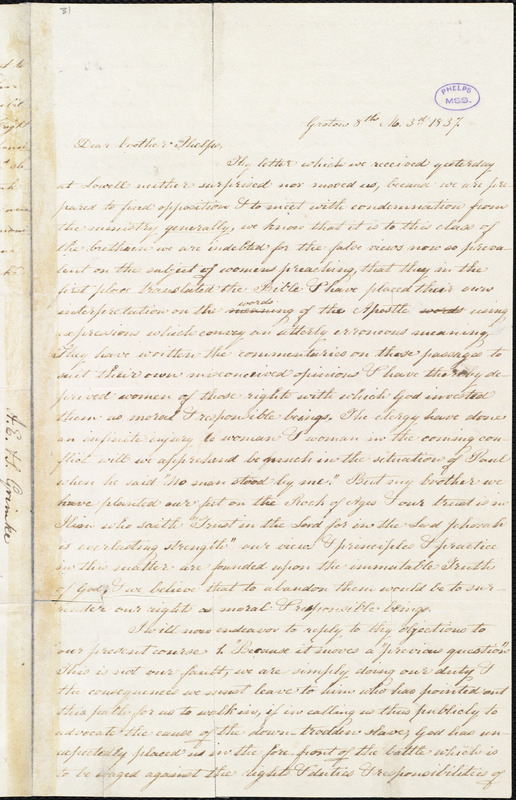 31
PHELPS
MSS.
Groton 8th Mo. 3rd 1837.
Dear brother Phelps,
Thy letter which we received yesterday
at Lowell neither surprised nor moved us, because we are pre
pared to find opposition & to meet with condemnation from
the ministry generally, we know that it is to this class of
the brethren we are indebted for the false views now so preva
lent on the subject of womens preaching, that they in the
first place translated the Bible & have placed their own
interpretation on the meaning words of the Apostle words using
expressions which convey an utterly erroneous meaning.
They have written the commentaries on those passages to
suit their own misconceived opinions & have thereby de
prived women of those rights with which God invested
them as moral & responsible beings. The clergy have done
an infinite injury to woman & woman in the coming con
flict will we apprehend be much in the situation of Paul
when he said "no man stood by me." But my brother we
have planted our feet on the Rock of Ages & our trust is in
Him who saith "Trust in the Lord for in the Lord Jehovah
is everlasting strength" our views & principles & practice
in this matter are founded upon the immutable Truth
of God, & we believe that to abandon them would be to sur-
render our right as moral & responsible beings.
I will now endeavor to reply to thy objections to
our present course 1. Because it moves a "previous question"
This is not our fault, we are simply doing our duty &
the consequences we must leave to him who has pointed out
this path for us to walk in, if in calling us thus publicly to
advocate the cause of the down-trodden slave, God has un-
expectedly placed us in the fore front of the battle which is
to be waged against the rights & duties & responsibilities of
A. E. & S. Grimke